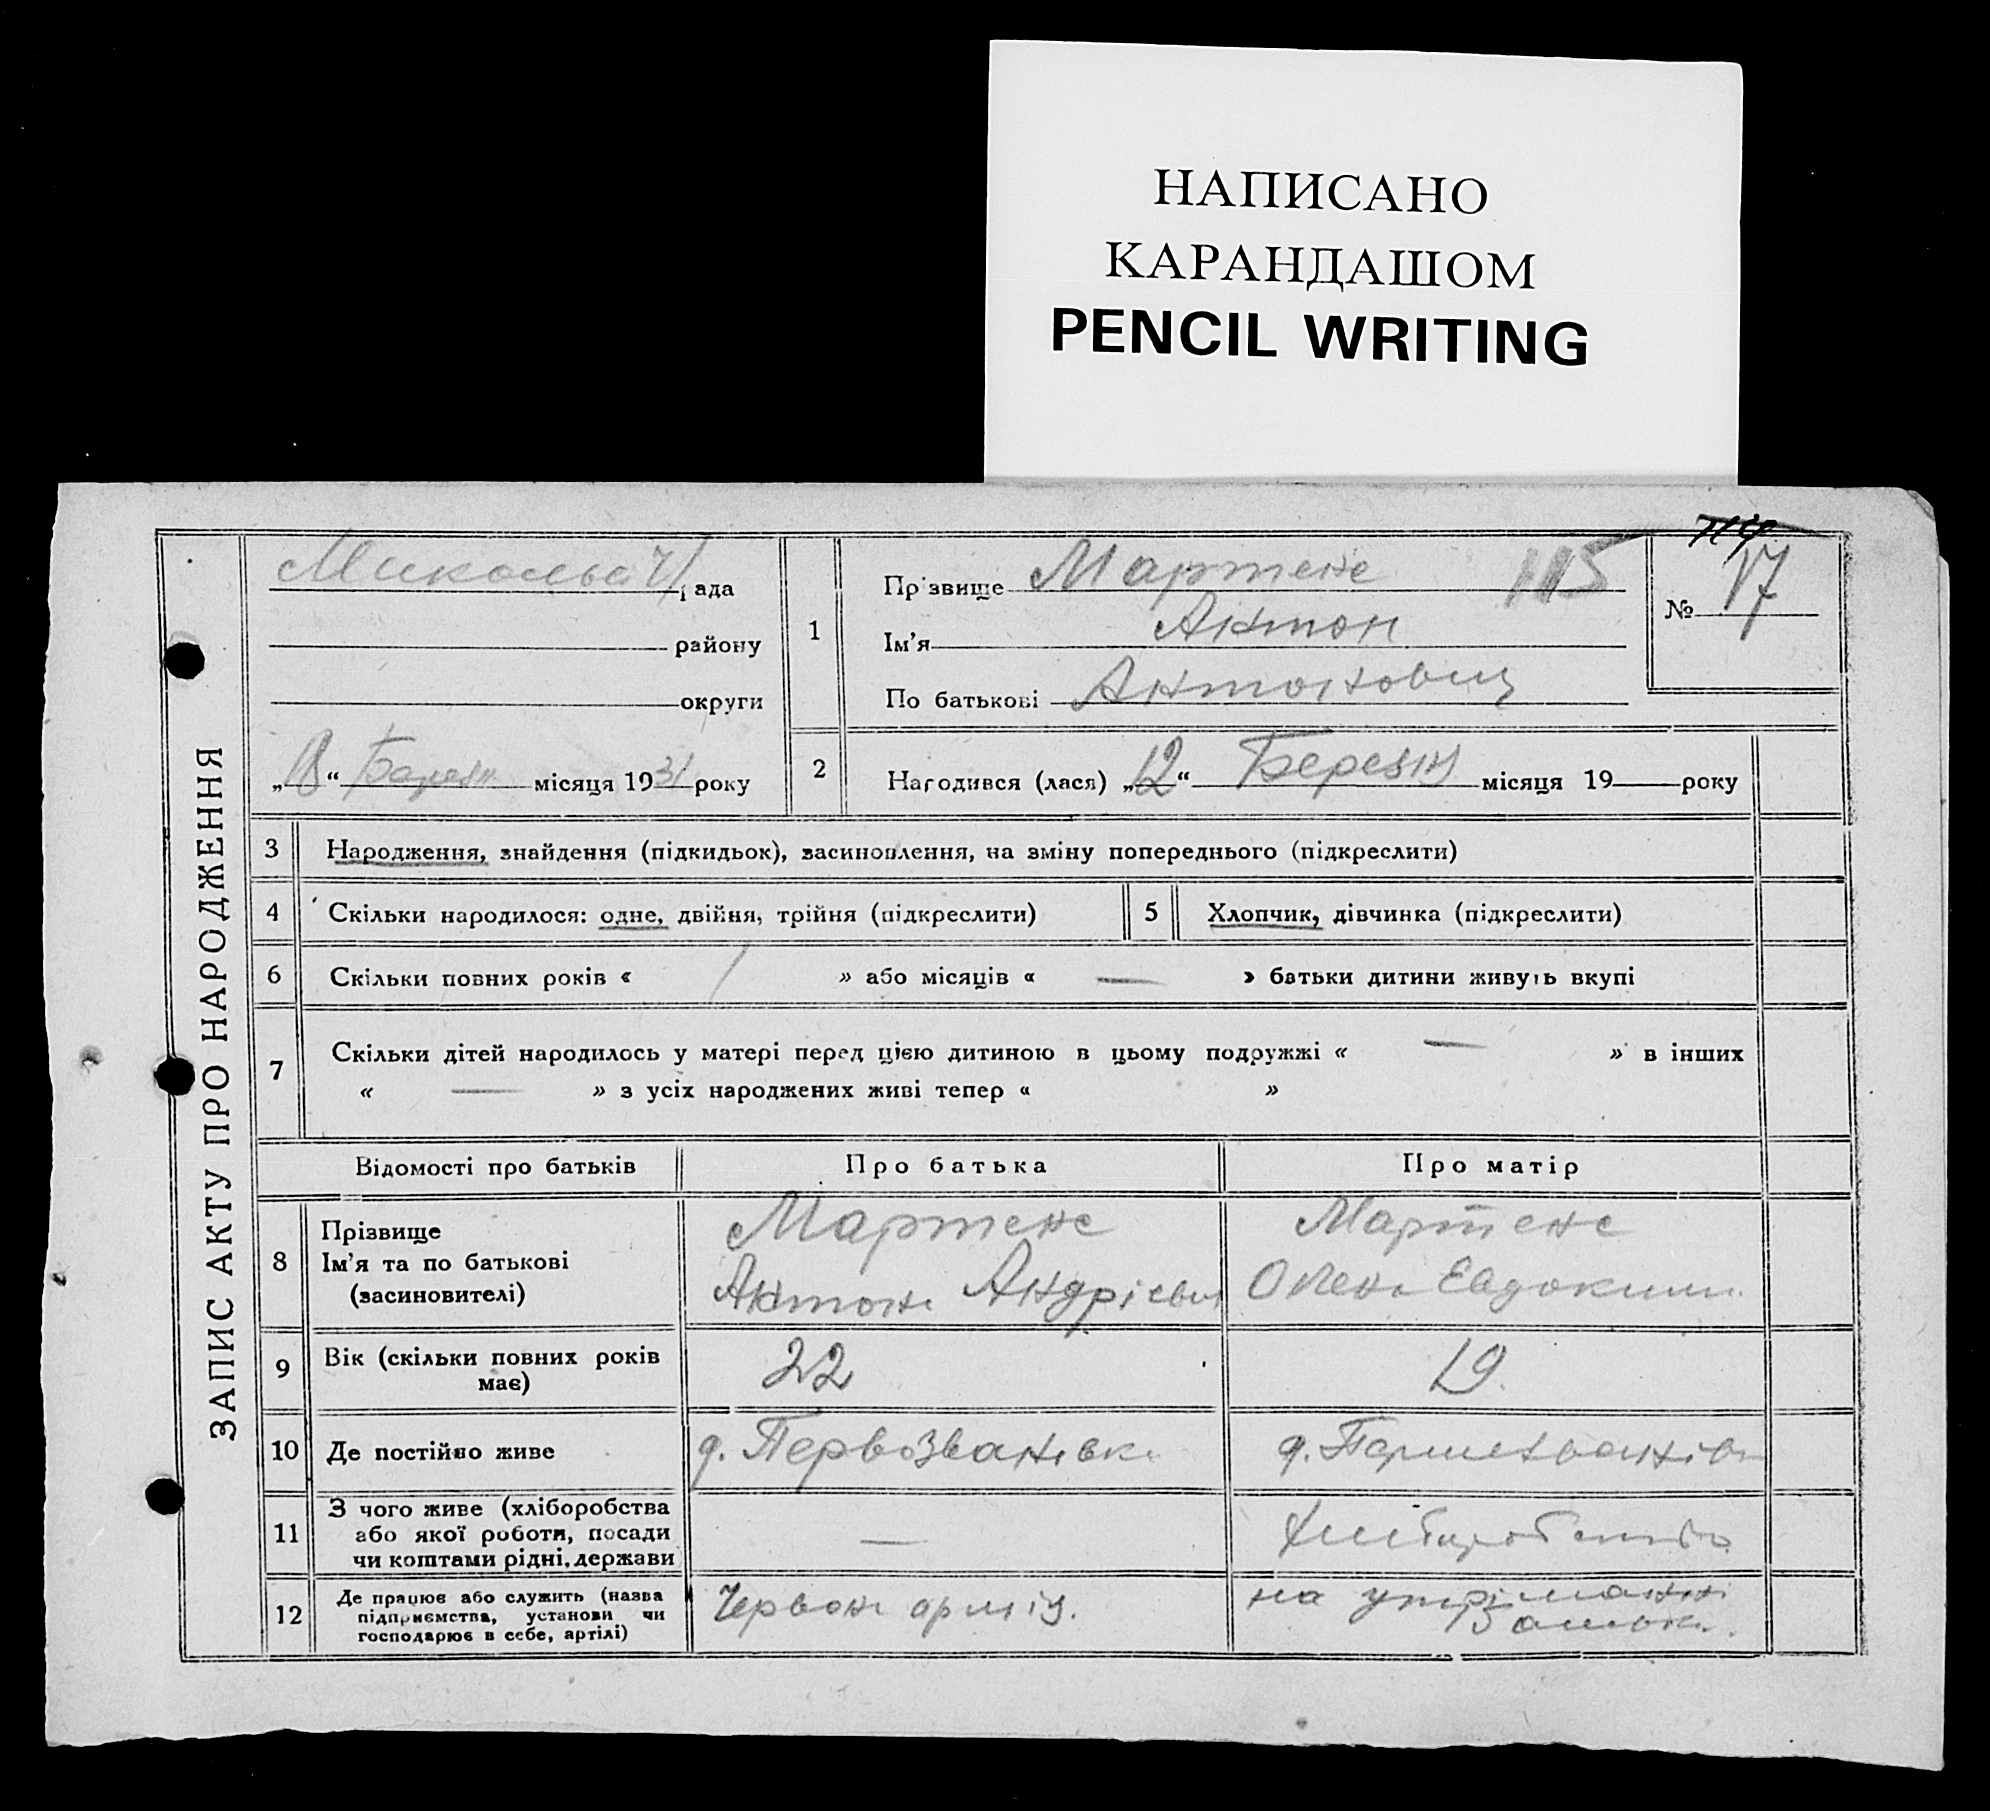 НАПИСАНО
КАРАНДАШОМ
PENCIL WRITING
ЗАПИС АКТУ ПРО НАРОДЖЕННЯ
рада
району
округи
„ “ місяця 1931 року
1
Прізвище Мартенс 115
Ім’я Антон
По батькові Антонович
№ 17
2
Народився (лася) „12“ Березня місяця 19 року
3 Народження, знайдення (підкидьок), засиновлення, на зміну попереднього (підкреслити)
4 Скільки народилося: одне, двійня, трійня (підкреслити)
5 Хлопчик, дівчинка (підкреслити)
6 Скільки повних років « / » або місяців « — » батьки дитини живуть вкупі
7 Скільки дітей народилось у матері перед цією дитиною в цьому подружжі « — » в інших
« — » з усіх народжених живі тепер « »
Відомості про батьків Про батька Про матір
8 Прізвище
Ім’я та по батькові
(засиновителі)
Мартенс
Антон Андрієвич
Мартенс
Олена Евдоким.
9 Вік (скільки повних років
має)
22
19.
10 Де постійно живе
д. Первозванівк
д.
11 З чого живе (хліборобства
або якої роботи, посади
чи коштами рідні, держави
—
12 Де працює або служить (назва
підприємства, установи чи
господарює в себе, артілі)
Червон армія.
на утріманні